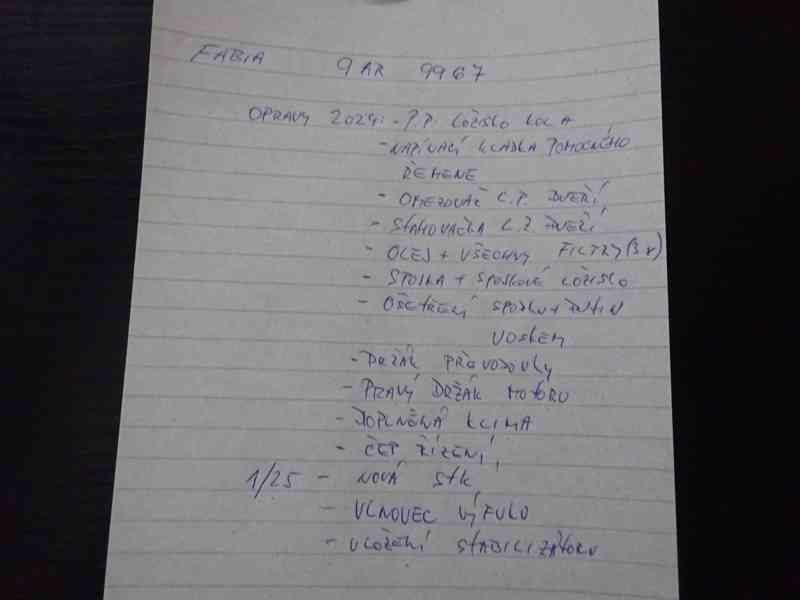 FABIA 9AR 9967
OPRAVY 2024: - P.P. LOŽISKO KOLA
- NAPÍNACÍ KLADKA POMOCNÉHO
ŘEMENE
- OMEZOVAČ L.P. DVEŘÍ
- STAHOVAČKA L.Z. DVEŘÍ
- OLEJ + VŠECHNY FILTRY (3x)
- STOJKA + SPOJKOVÉ LOŽISKO
- OŠETŘENÍ SPODKU + DUTIN
VOSKEM
- DRŽÁK PŘEVODOVKY
- PRAVÝ DRŽÁK MOTORU
- DOPLNĚNÁ KLIMA
- ČEP ŘÍZENÍ
1/25 - NOVÁ STK
- VLNOVEC VÝFUKU
- ULOŽENÍ STABILIZÁTORU